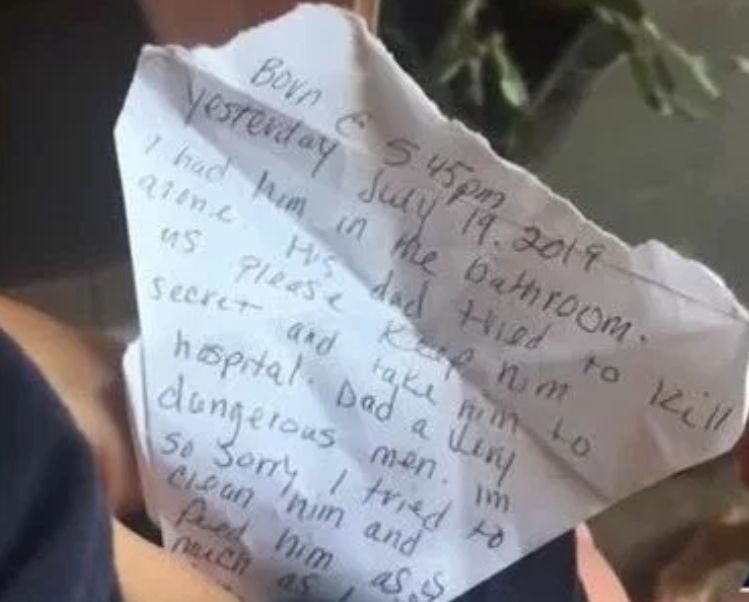 Born @ 5 45pm
yesterday July 19. 2019
I had him in the bathroom.
alone. His dad tried to kill
us please keep him
secret and take him to
hospital. Dad a very
dangerous men. Im
so sorry I tried to
clean him and
feed him as
much as I